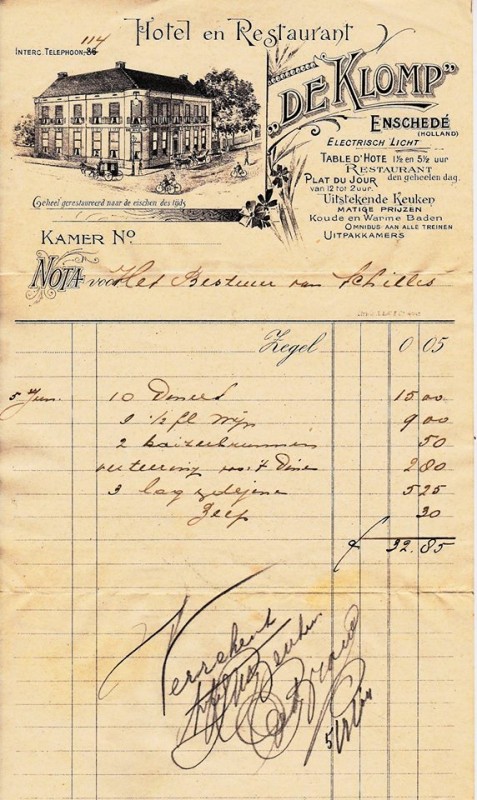 Hotel en Restaurant
117
INTERC. TELEPHOON, 35
"DE KLOMP"
ENSCHEDÉ
(HOLLAND)
ELECTRISCH LICHT
TABLE D'HOTE 1½ en 5½ uur
RESTAURANT
den geheelen dag.
PLAT DU JOUR
van 12 tot 2 uur.
Uitstekende Keuken
MATIGE PRIJZEN
Koude en Warme Baden
OMNIBUS AAN ALLE TREINEN
UITPAKKAMERS
Geheel gerestaureerd naar de eischen des tijds
KAMER No.
NOTA voor Het Bestuur van Achilles
Zegel 0 05
5 Jun. 10 Diners 15 00
9 ½ fl Wijn 9 00
2 kaizerbrunnen 50
verteering voor 't Diner 2 80
3 log dejene 5 25
Zeep 30
f 32.85
5